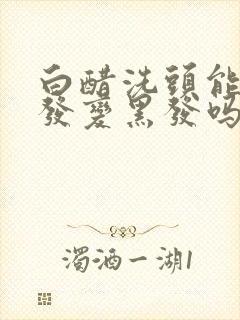 白醋洗頭能
發變黑發嗎
濁酒一湖1